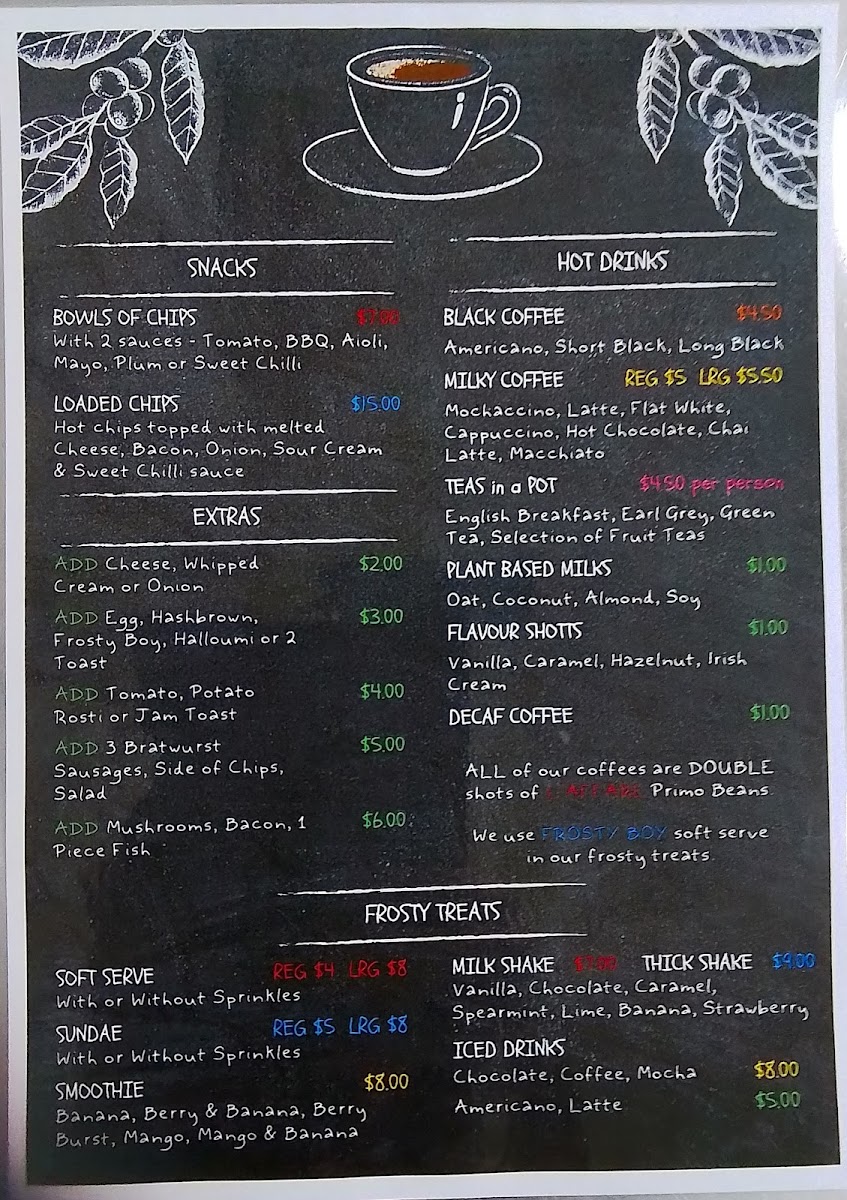 SNACKS
BOWLS OF CHIPS $7.00
With 2 sauces - Tomato, BBQ, Aioli,
Mayo, Plum or Sweet Chilli
LOADED CHIPS $15.00
Hot chips topped with melted
Cheese, Bacon, Onion, Sour Cream
& Sweet Chilli sauce
EXTRAS
ADD Cheese, Whipped $2.00
Cream or Onion
ADD Egg, Hashbrown, $3.00
Frosty Boy, Halloumi or 2
Toast
ADD Tomato, Potato $4.00
Rosti or Jam Toast
ADD 3 Bratwurst $5.00
Sausages, Side of Chips,
Salad
ADD Mushrooms, Bacon, 1 $6.00
Piece Fish
HOT DRINKS
BLACK COFFEE $4.50
Americano, Short Black, Long Black
MILKY COFFEE REG $5 LRG $5.50
Mochaccino, Latte, Flat White,
Cappuccino, Hot Chocolate, Chai
Latte, Macchiato
TEAS in a POT $4.50 per person
English Breakfast, Earl Grey, Green
Tea, Selection of Fruit Teas
PLANT BASED MILKS $1.00
Oat, Coconut, Almond, Soy
FLAVOUR SHOTTS $1.00
Vanilla, Caramel, Hazelnut, Irish
Cream
DECAF COFFEE $1.00
ALL of our coffees are DOUBLE
shots of Primo Beans
We use FROSTY BOY soft serve
in our frosty treats
FROSTY TREATS
SOFT SERVE REG $4 LRG $8
With or Without Sprinkles
SUNDAE REG $5 LRG $8
With or Without Sprinkles
SMOOTHIE $8.00
Banana, Berry & Banana, Berry
Burst, Mango, Mango & Banana
MILK SHAKE $7.00 THICK SHAKE $9.00
Vanilla, Chocolate, Caramel,
Spearmint, Lime, Banana, Strawberry
ICED DRINKS
Chocolate, Coffee, Mocha $8.00
Americano, Latte $5.00